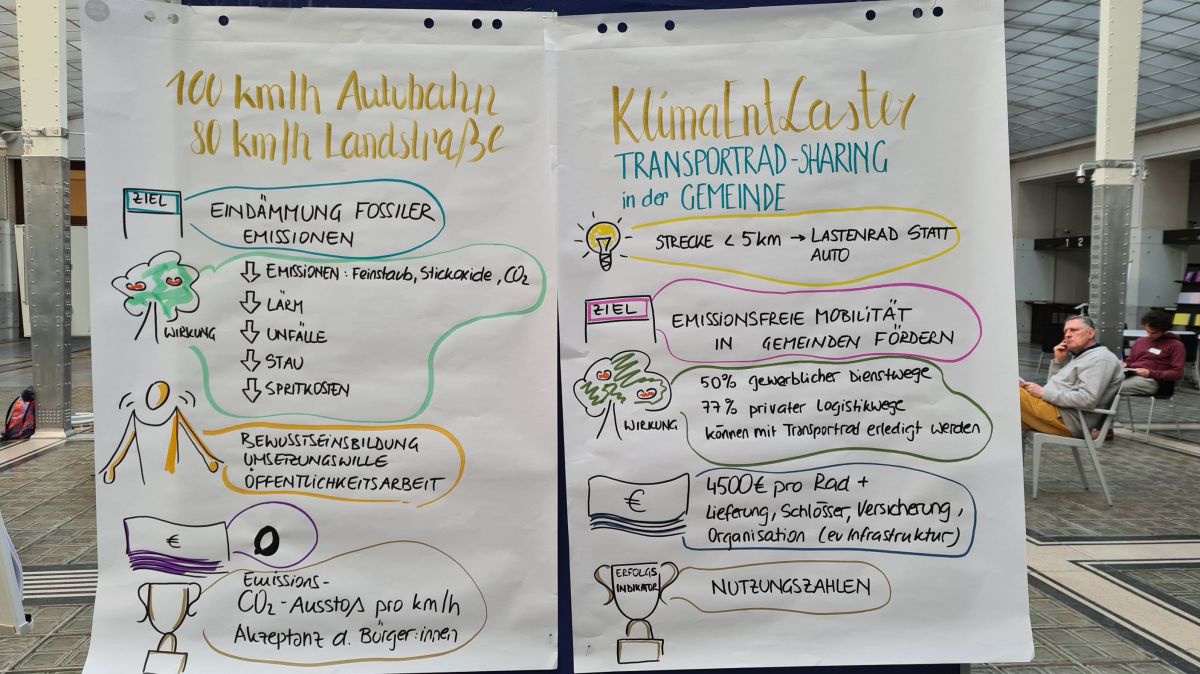 100 km/h Autobahn
80 km/h Landstraße
ZIEL
EINDÄMMUNG FOSSILER
EMISSIONEN
WIRKUNG
EMISSIONEN: Feinstaub, Stickoxide, CO2
LÄRM
UNFÄLLE
STAU
SPRITKOSTEN
BEWUSSTSEINSBILDUNG
UMSETZUNGSWILLE
ÖFFENTLICHKEITSARBEIT
€
0
Emissions-
CO2-Ausstoß pro km/h
Akzeptanz d. Bürger:innen
KlimaEntLaster
TRANSPORTRAD-SHARING
in der GEMEINDE
STRECKE < 5 km → LASTENRAD STATT
AUTO
ZIEL
EMISSIONSFREIE MOBILITÄT
IN GEMEINDEN FÖRDERN
WIRKUNG
50% gewerblicher Dienstwege
77% privater Logistikwege
können mit Transportrad erledigt werden
€
4500€ pro Rad +
Lieferung, Schlösser, Versicherung,
Organisation (ev Infrastruktur)
ERFOLGS
INDIKATOR
NUTZUNGSZAHLEN
1 2